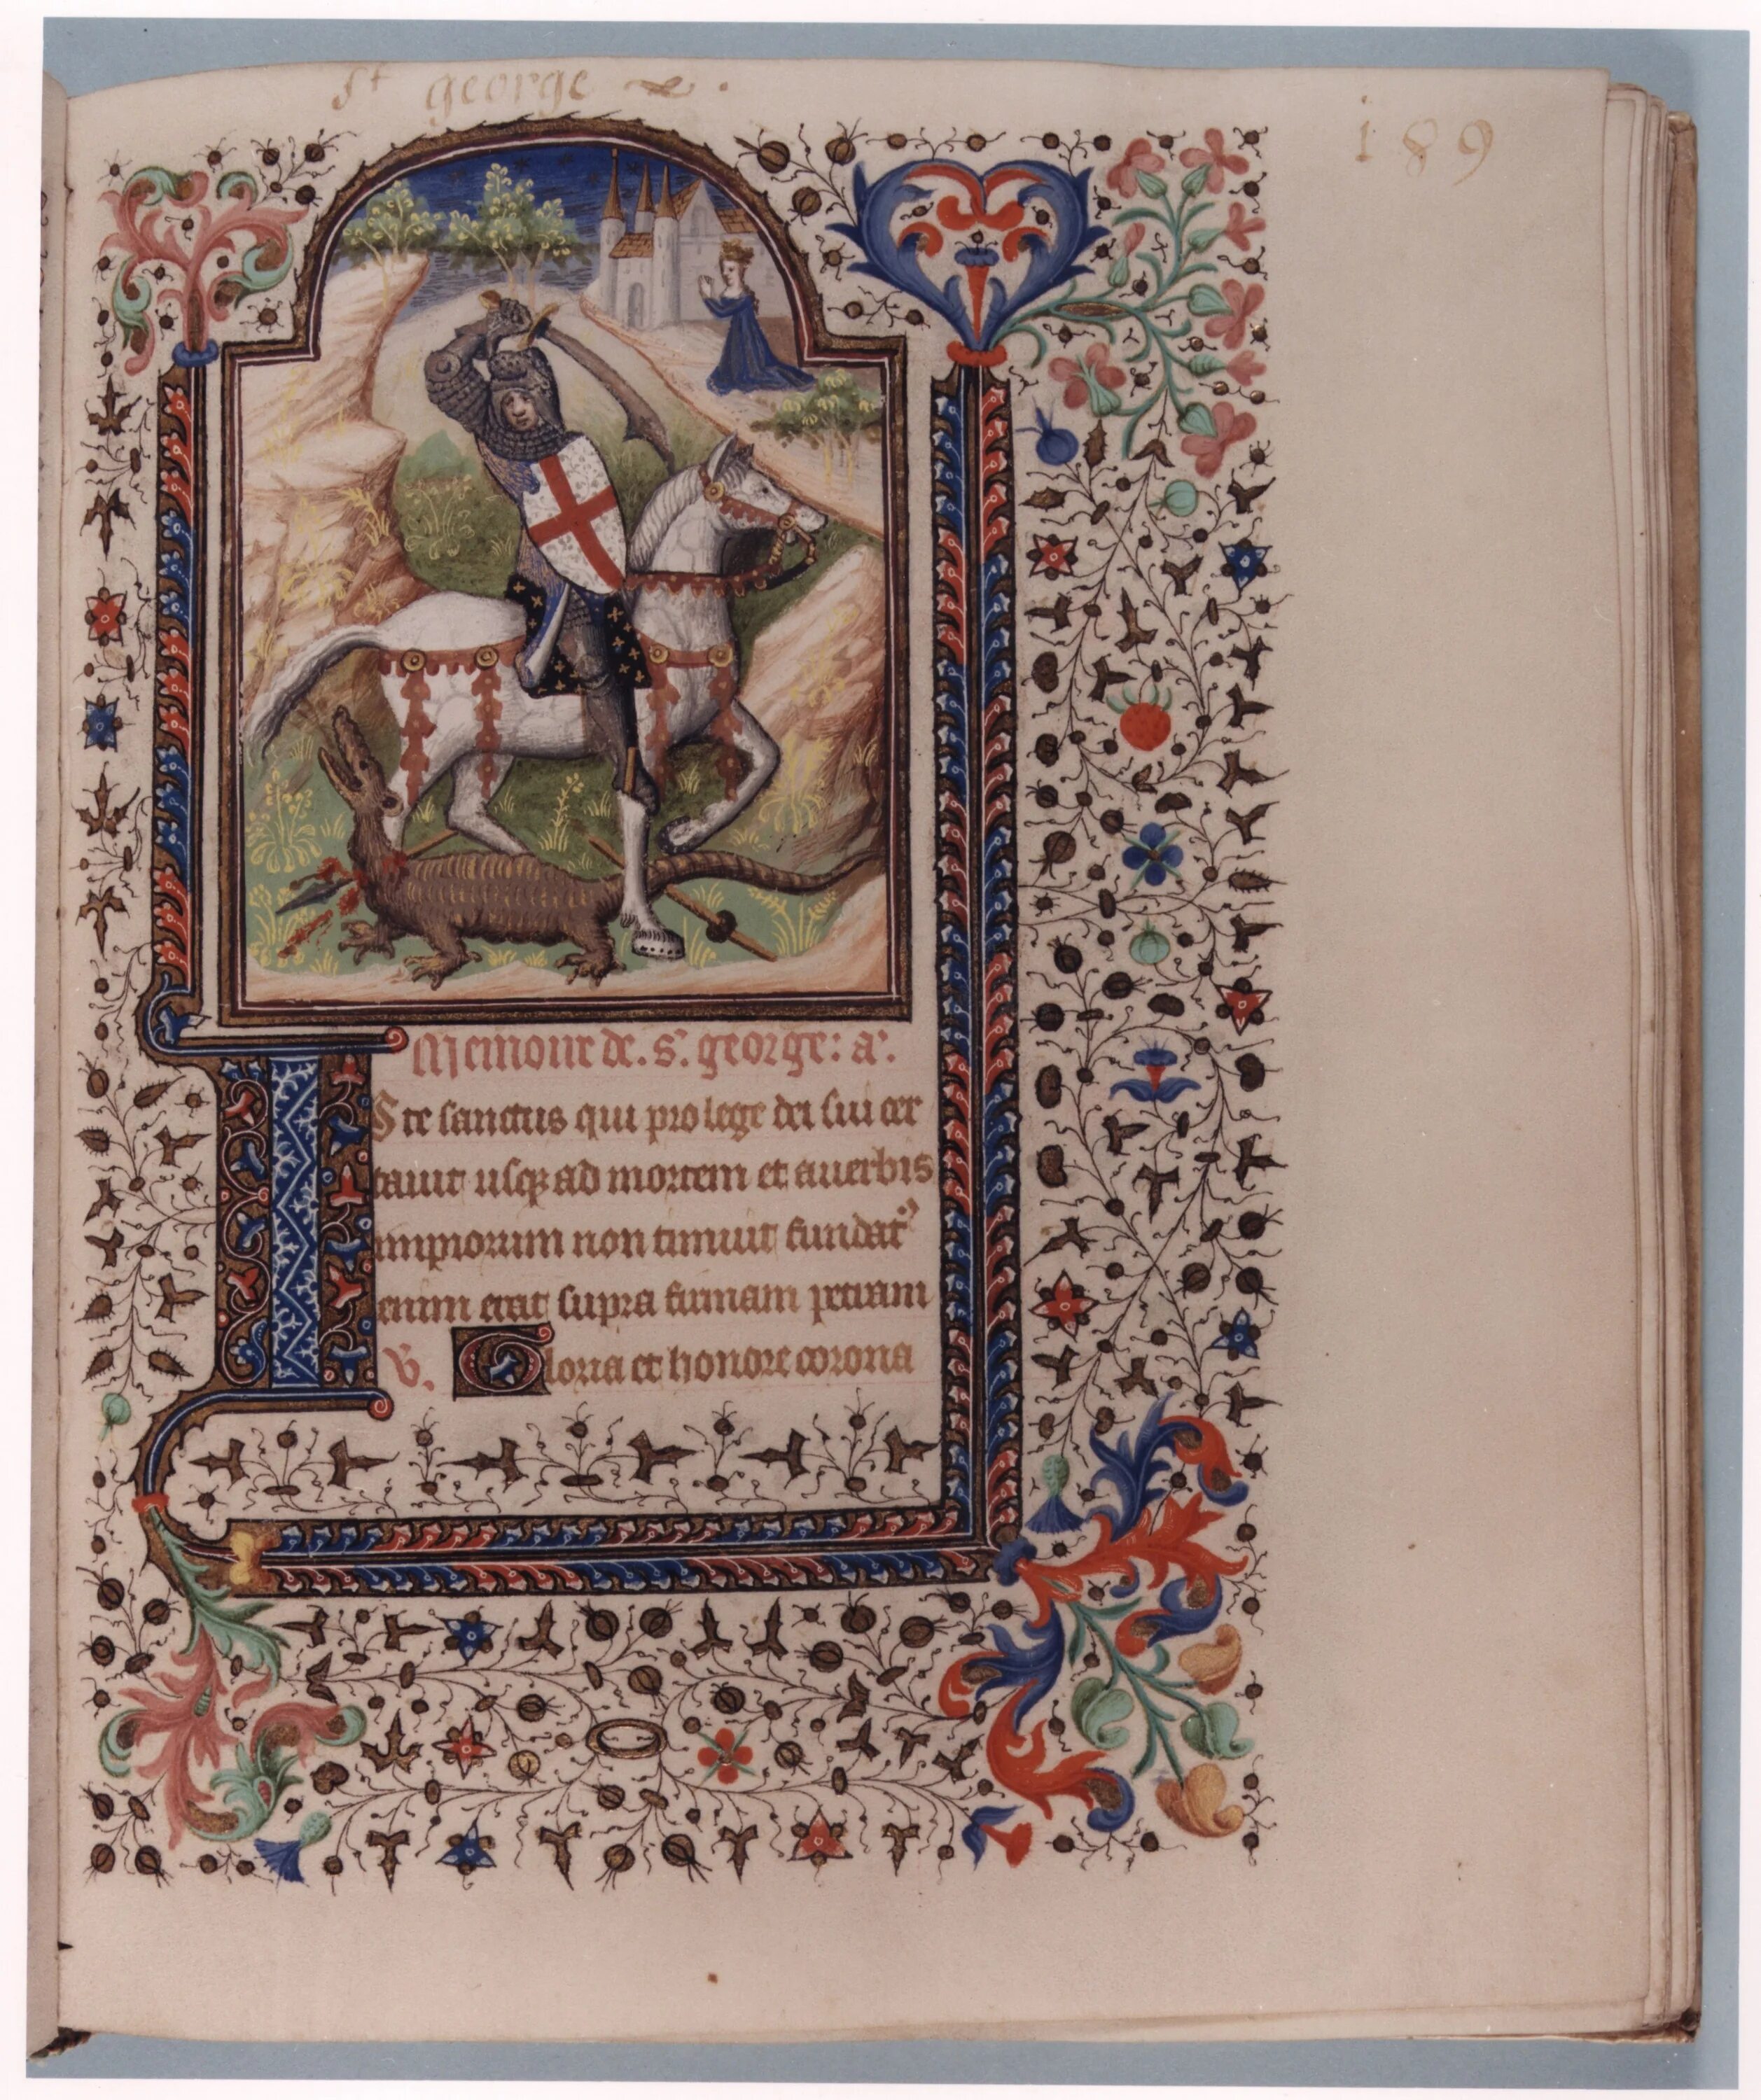 st george
189
Memoire de. s. george: a.
Iste sanctus qui pro lege dei sui cer
tauit usq; ad mortem et a uerbis
impiorum non timuit fundat᷒
enim erat supra firmam petram
V. Gloria et honore corona